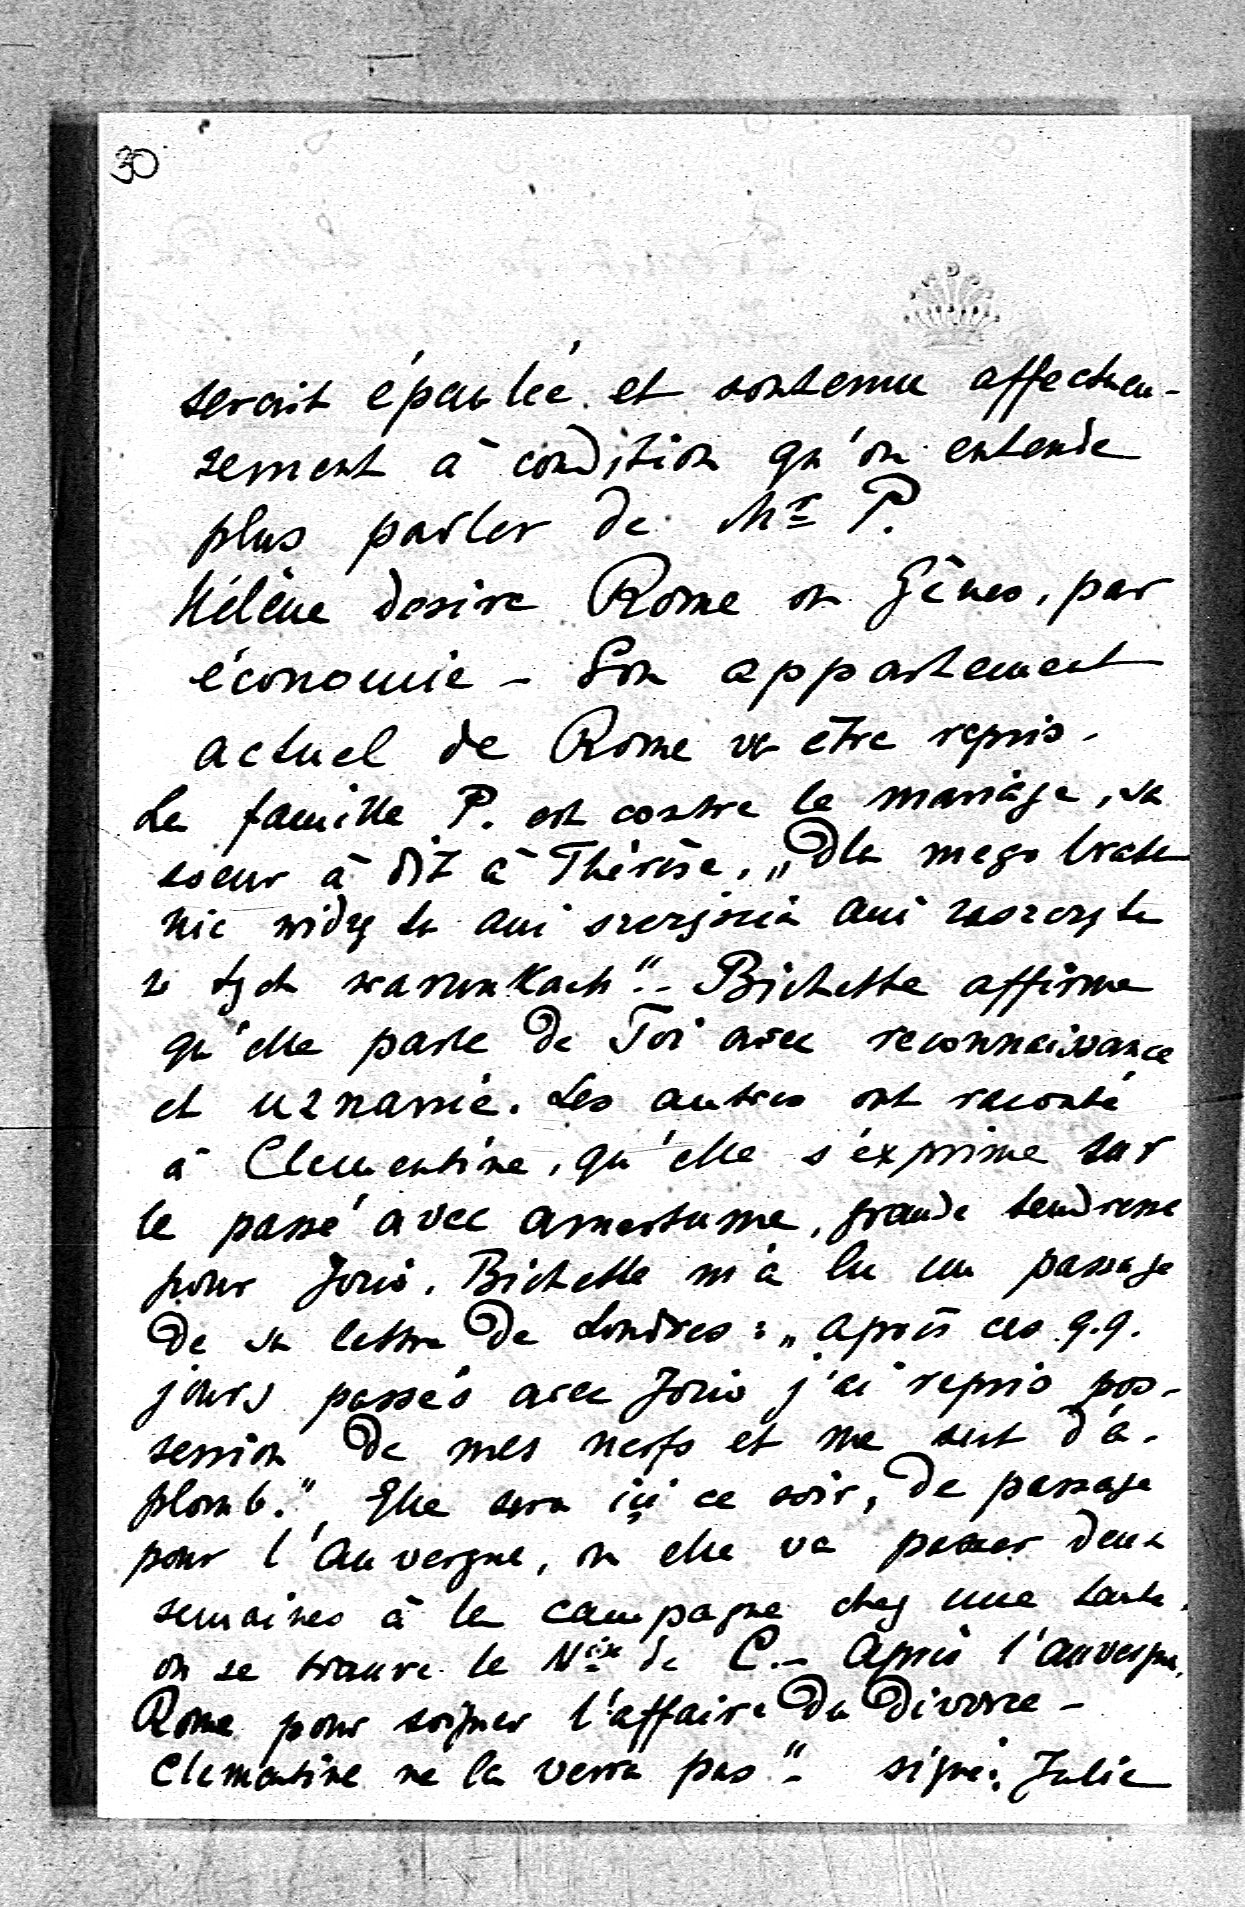 30
serait épaulée et soutenue affectueu-
sement à condition qu'on entende
plus parler de Mr P.
Hélène desire Rome ou Gênes, par
économie - Son appartement
actuel de Rome va être repris -
La famille P. est contre le mariage, sa
soeur à dit à Thérèse, „Dla mego brata
nie widzę tu ani szczęścia ani zaszczytu
w tych warunkach" - Bichette affirme
qu'elle parle de Toi avec reconnaissance
et uznanie. Les autres ont raconté
à Clementine, qu'elle s'exprime sur
le passé avec amertume, grande tendresse
pour Jouis. Bichette m'a lu un passage
de sa lettre de Londres : „après ces q.q.
jours passés avec Jouis j'ai repris pos-
session de mes nerfs et me sent d'a-
plomb." Elle sera içi ce soir, de passage
pour l'Auvergne, ou elle va passer deux
semaines à la campagne chez une tante,
ou se trouve le de C. - Après l'Auvergne,
Rome pour soigner l'affaire du Divorce -
Clementine ne la verra pas" - signé: Julie